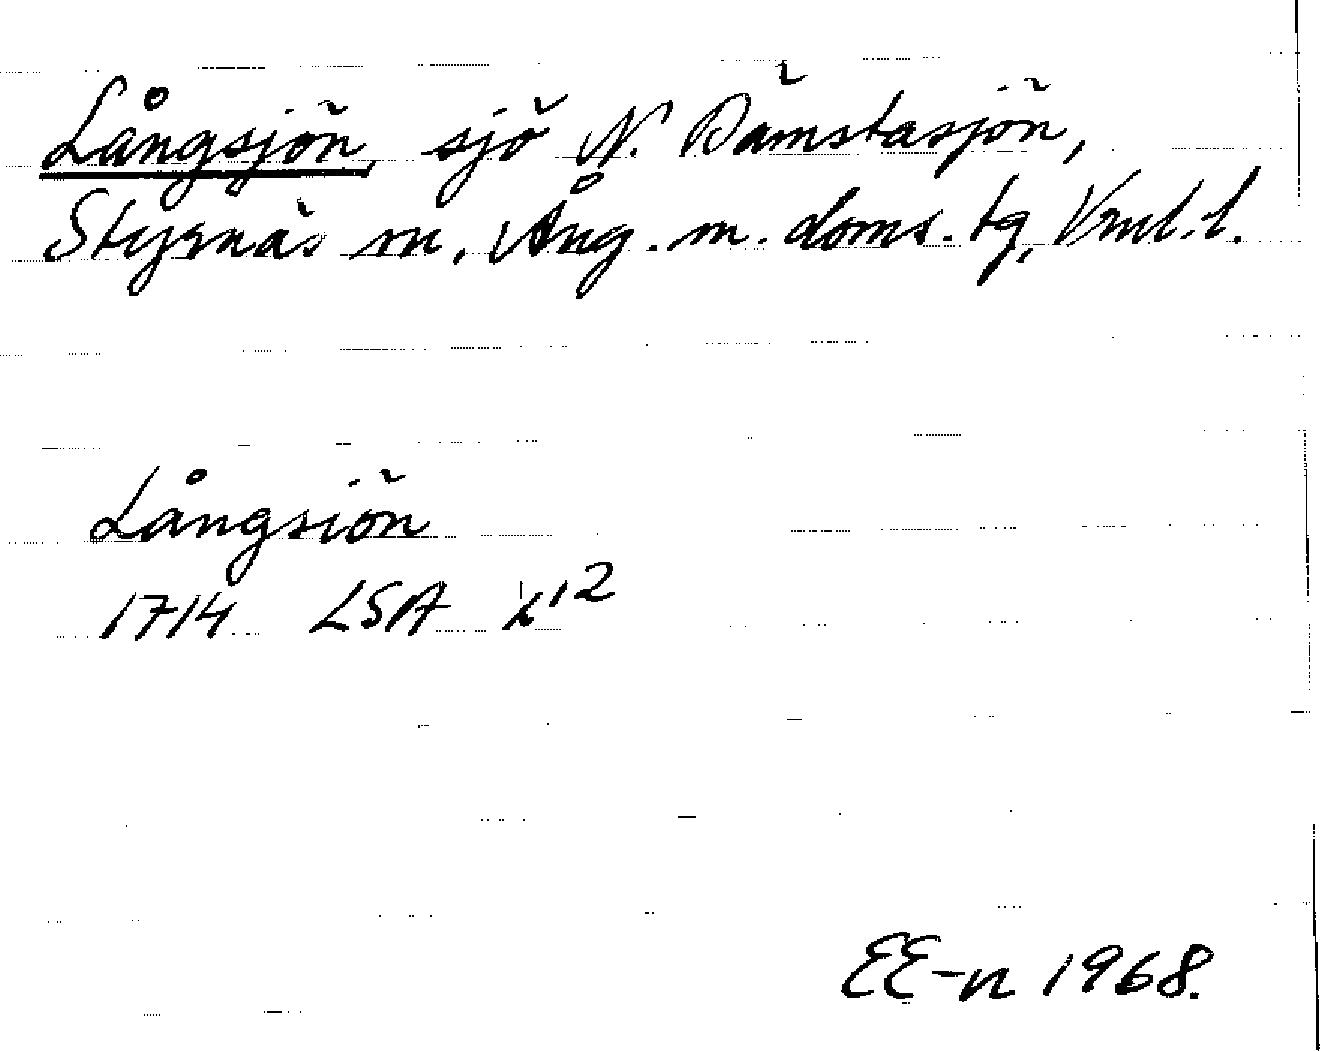 Långsjön, sjö N. Dämstasjön,
Styrnäs sn, Ång. m. doms. tg, Vnl. l.
Långsiön
1714 LSA x¹²
EE-n 1968.